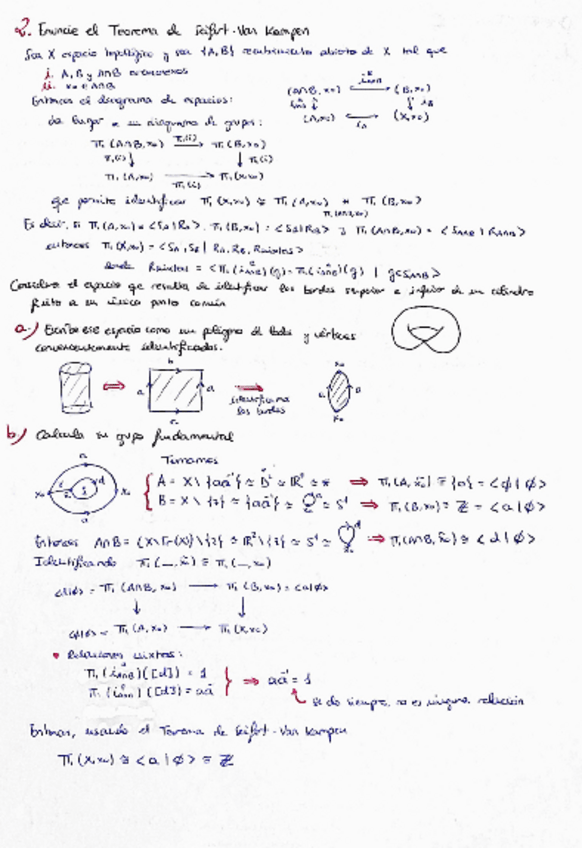 2. Enuncie el Teorema de Seifert-Van Kampen
Sea X espacio topológico y sea {A,B} recubrimiento abierto de X tal que
i. A, B y A∩B arcoconexos
ii. x₀ ∈ A∩B
Entonces el diagrama de espacios:
(A∩B, x₀) → (B, x₀)
(A,x₀) → (X,x₀)
da lugar a un diagrama de grupos:
π₁(A∩B,x₀) → π₁(B,x₀)
π₁(A,x₀) → π₁(X,x₀)
que permite identificar π₁(X,x₀) ≅ π₁(A,x₀) * π₁(B,x₀)
π₁(A∩B,x₀)
Es decir, si π₁(A,x₀) = <S_A | R_A>, π₁(B,x₀) = <S_B | R_B> y π₁(A∩B,x₀) = <S_A∩B | R_A∩B>
entonces π₁(X,x₀) = <S_A, S_B | R_A, R_B, R_mixtas>
donde R_mixtas = <π₁(i_A∩B)(g) = π₁(i_A∩B)(g) | g∈S_A∩B>
Considera el espacio que resulta de identificar los bordes superior e inferior de un cilindro
finito a un único punto común
a) Escribe ese espacio como un polígono de lados y vértices
convenientemente identificados.
b
a a
identificamos
los bordes
x₀
a a
x₀
b) Calcula su grupo fundamental
Tomamos
a
x₀ d x₀
a
A = X \ {aa⁻¹} ≃ D² ≃ ℝ² ≃ * ⇒ π₁(A, x̃₀) ≅ {0} = <∅ | ∅>
B = X \ {z} ≃ {aa⁻¹} ≃ S¹ ⇒ π₁(B,x₀) ≅ ℤ = <a | ∅>
Entonces A∩B = (X \ Fr(X)) \ {z} ≃ ℝ² \ {z} ≃ S¹ ≃ ⇒ π₁(A∩B, x̃₀) ≅ <d | ∅>
Identificando π₁(_, x̃₀) ≅ π₁(_, x₀)
<d|∅> = π₁(A∩B, x₀) → π₁(B, x₀) = <a|∅>
<∅|∅> = π₁(A,x₀) → π₁(X,x₀)
• Relaciones mixtas:
π₁(i_A∩B)([d]) = 1
π₁(i_A∩B)([d]) = aa⁻¹
⇒ aa⁻¹ = 1
se da siempre, no es ninguna relación
Entonces, usando el Teorema de Seifert-Van Kampen
π₁(X,x₀) ≅ <a | ∅> ≅ ℤ